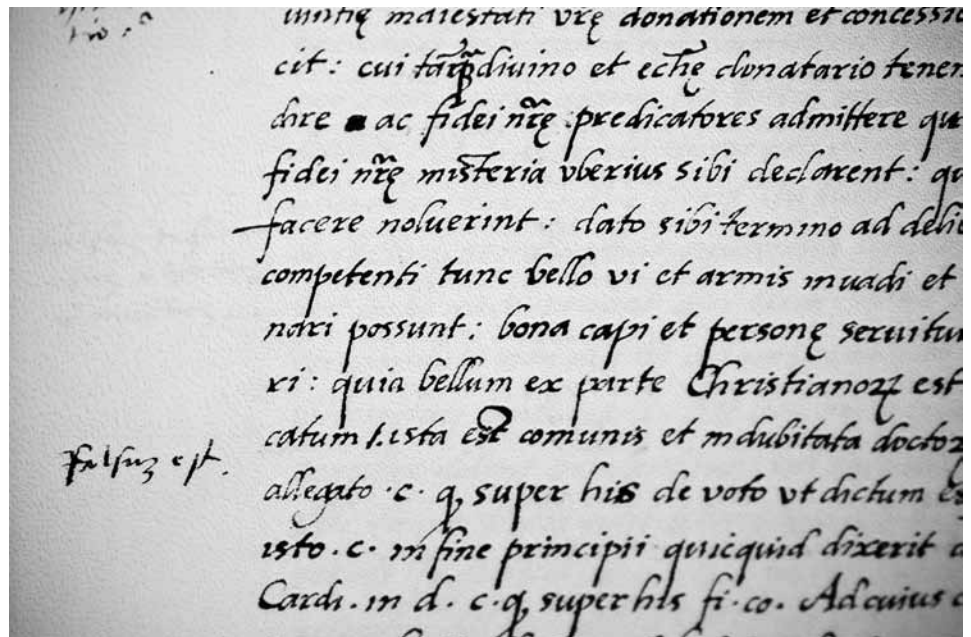 maiestati vrę donationem et concessio
cit: cui divino et donatario tenen
dire ac fidei nr̃ę predicatores admittere qu
fidei nr̃ę misteria vberius sibi declarent: qu
facere noluerint: dato sibi termino ad delib
competenti tunc bello vi et armis inuadi et
nari possunt: bona capi et personę seruitu
ri: quia bellum ex parte Christianoꝝ est
catum ista est comunis et indubitata doctoꝝ
falsuꝫ est.
allegato .c. super his de voto vt dictum es
isto .c. in fine principii quicquid dixerit
Cardi. in d. c. super his fi. co. Ad cuius